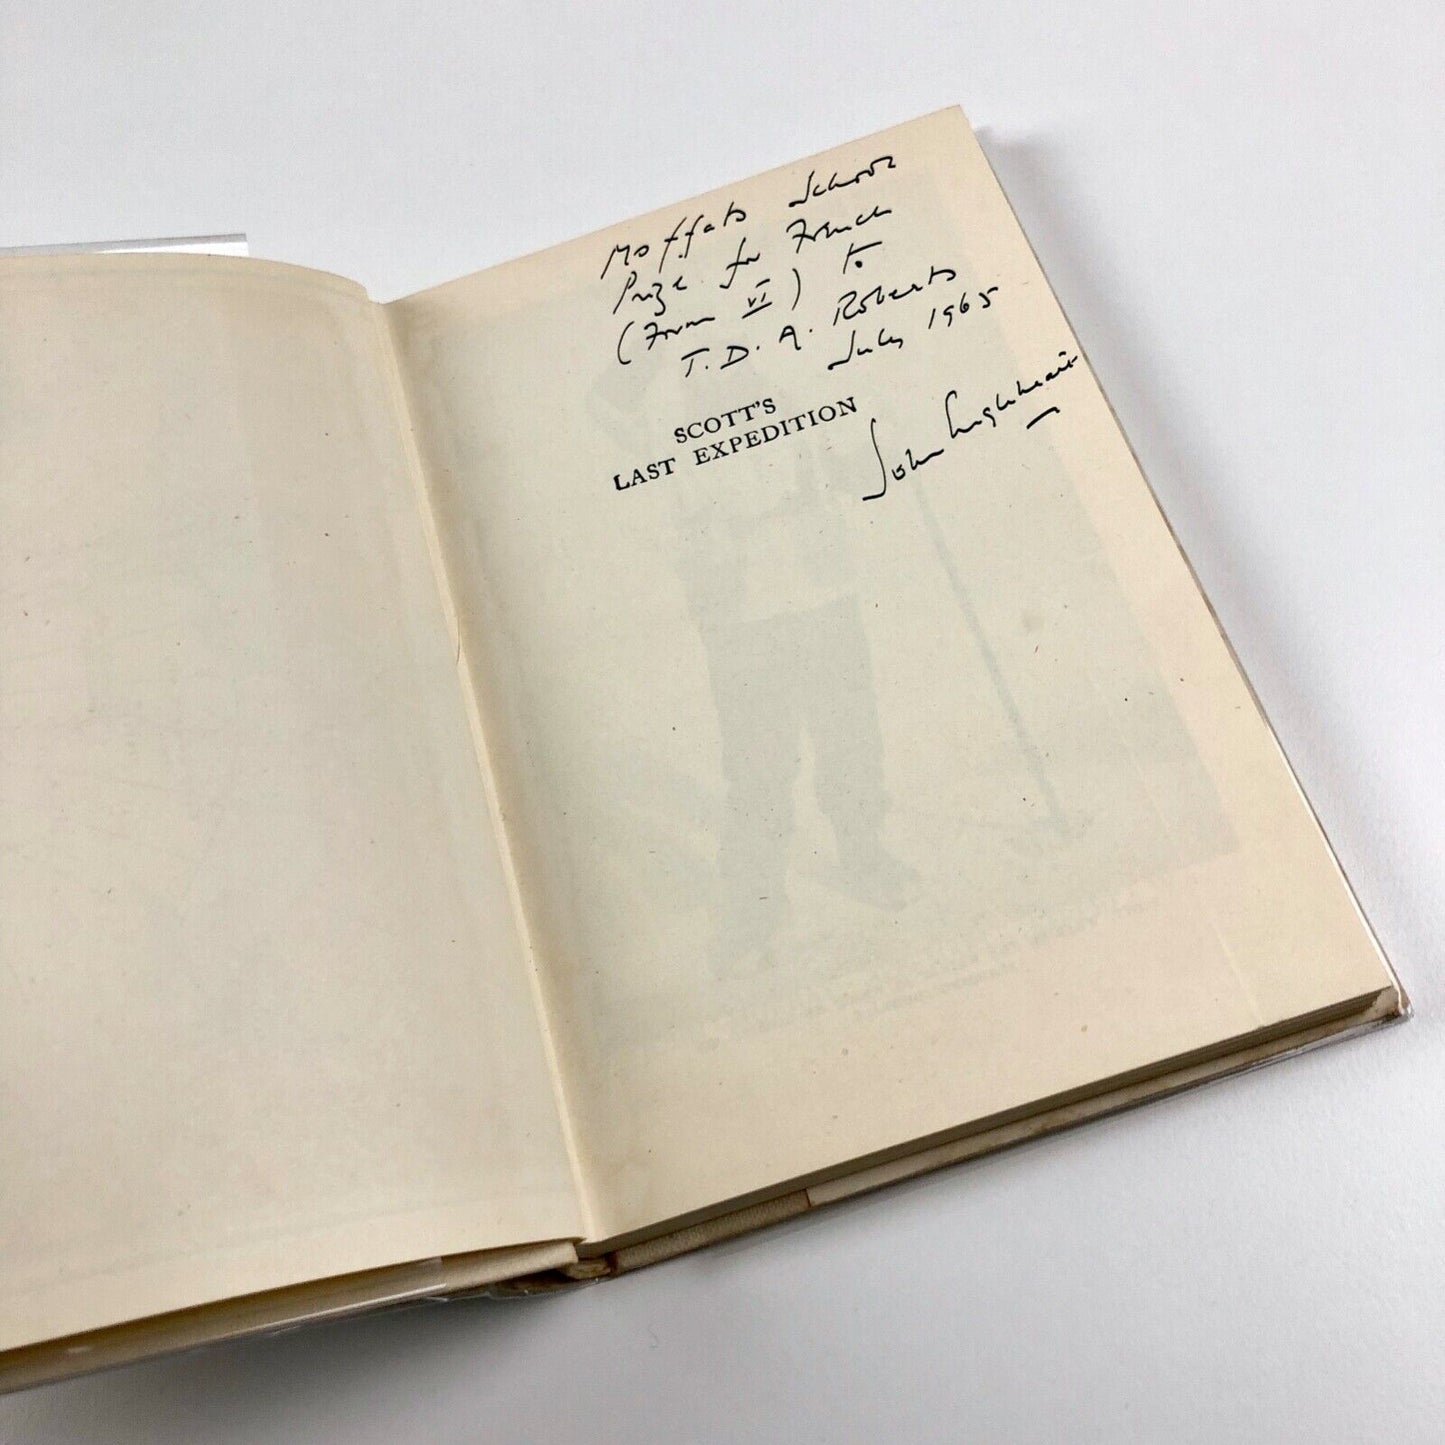 Moffats School
Prize for French
(Form VI) to
T. D. A. Roberts
July 1965
SCOTT'S
LAST EXPEDITION
John Engleheart